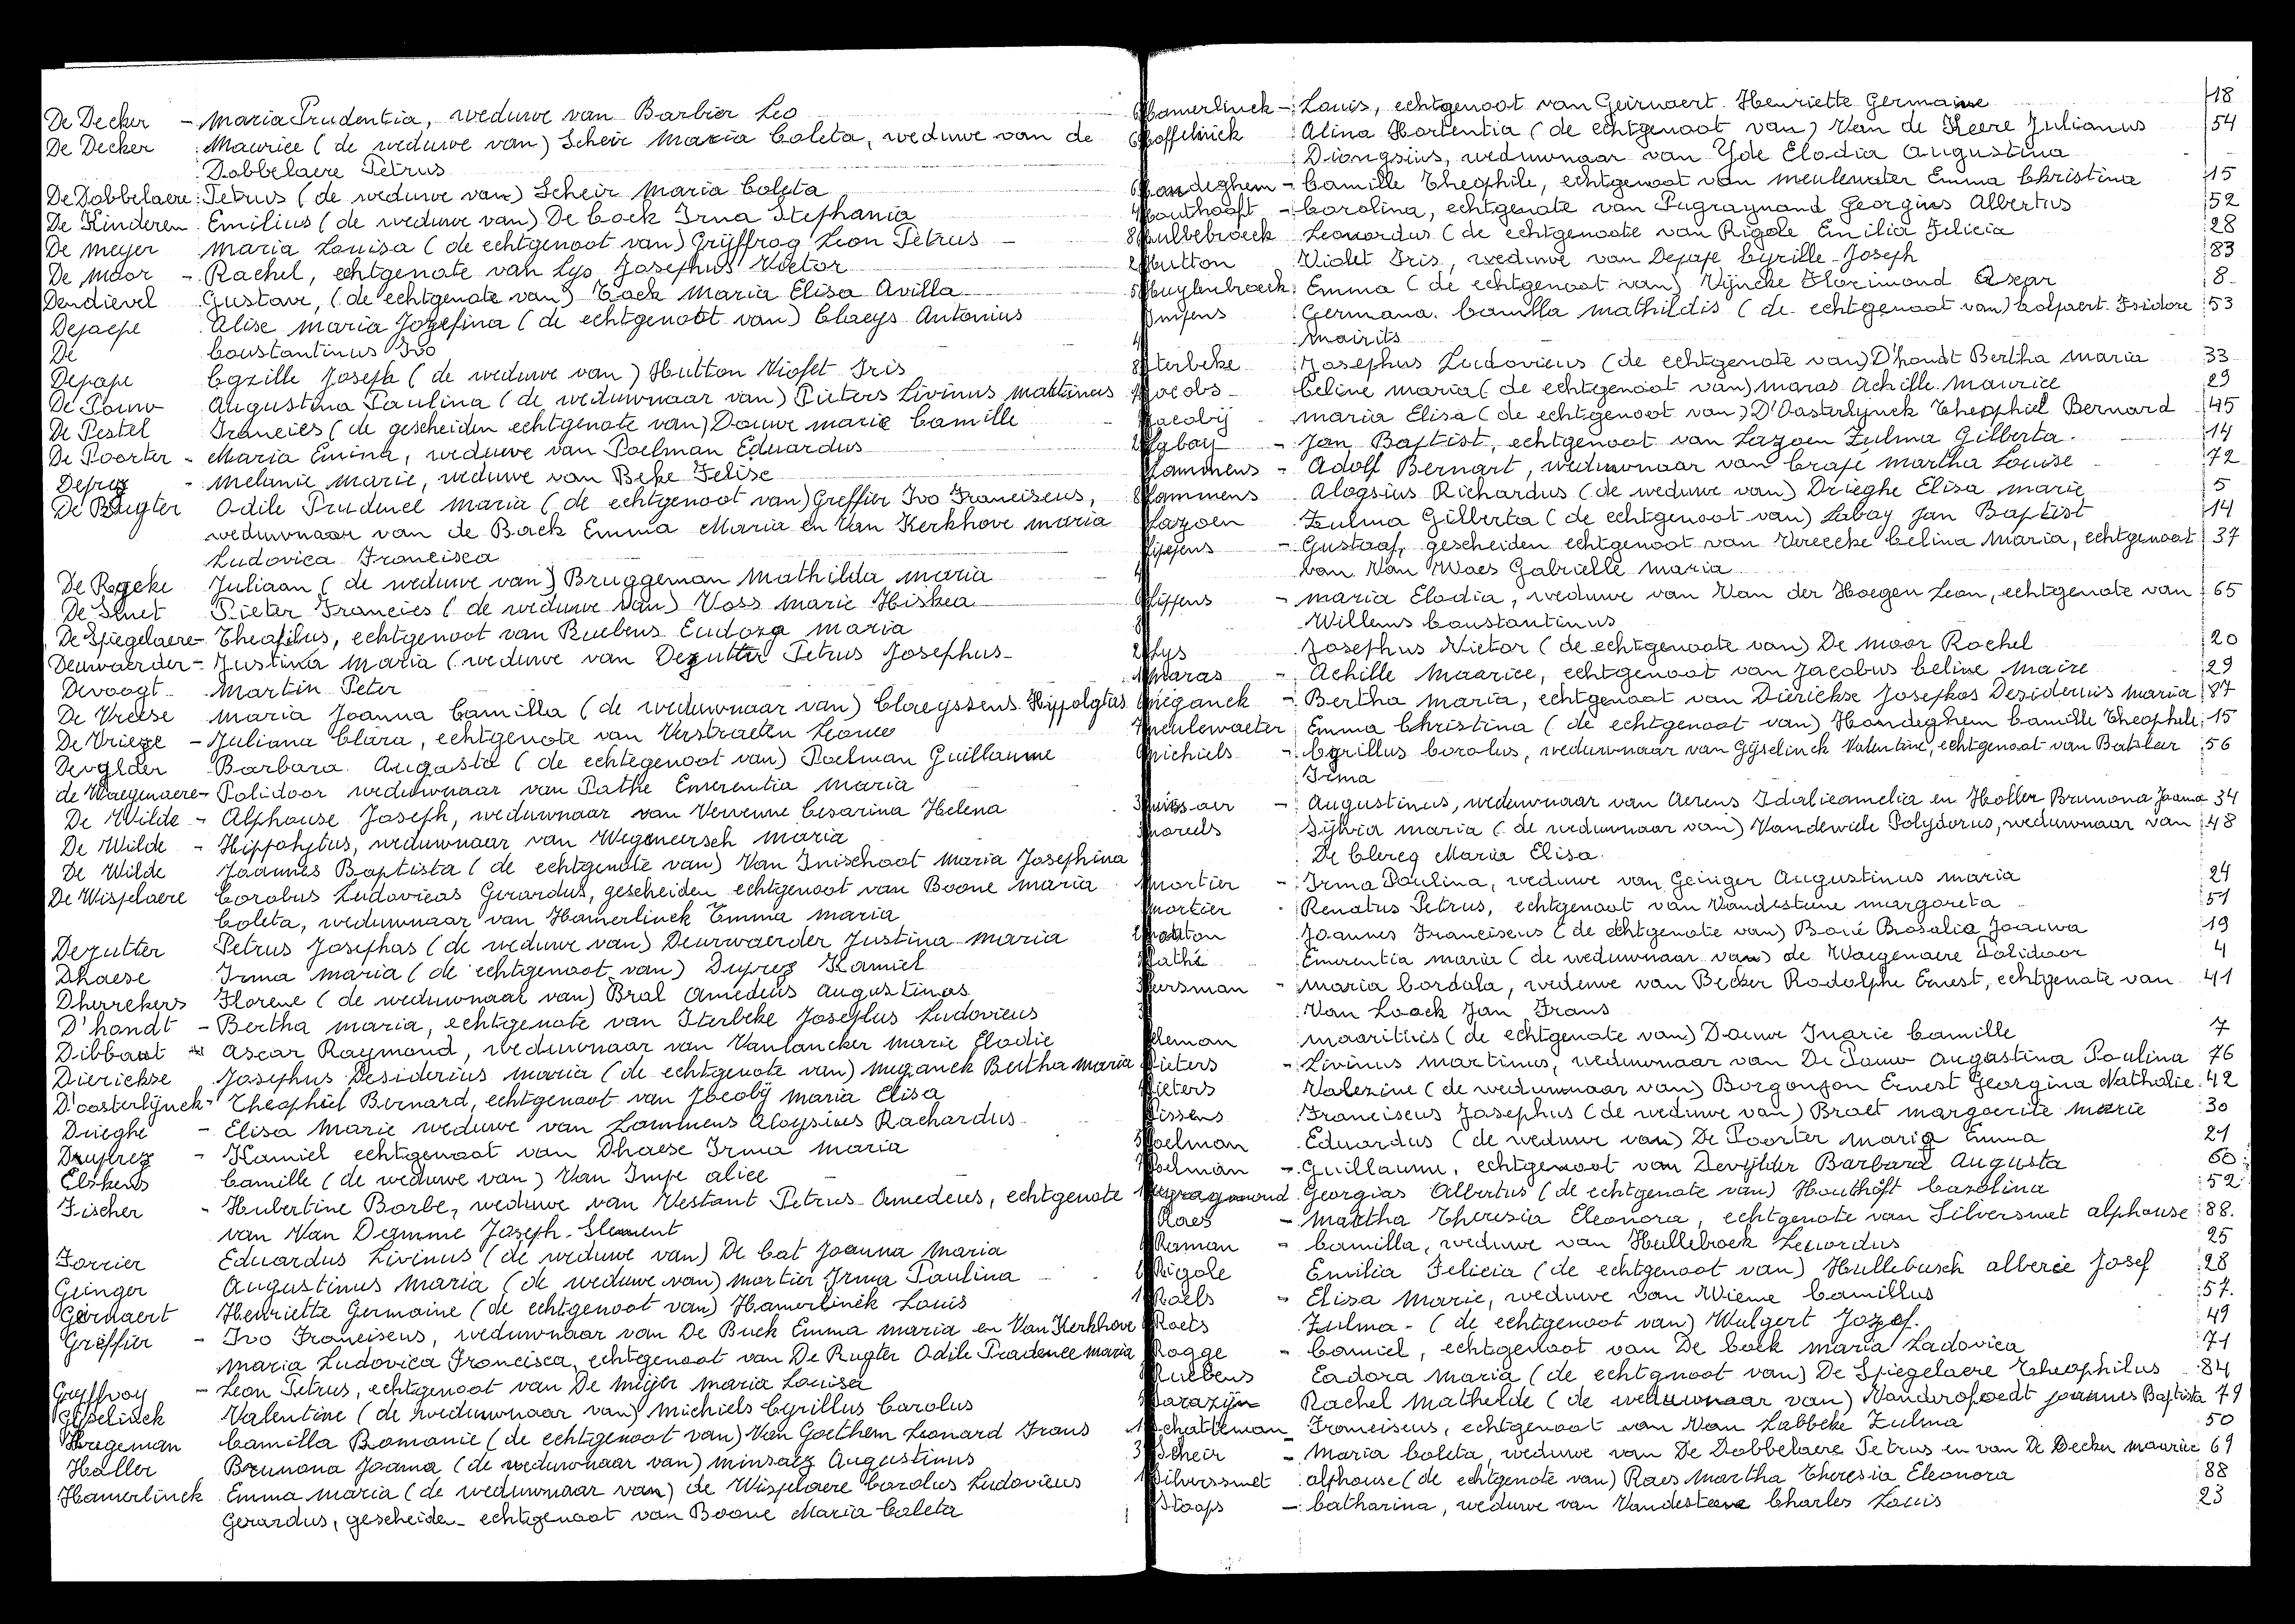 De Decker - Maria Prudentia, weduwe van Barbier Leo
De Decker Maurice (de weduwe van) Scheir Maria Coleta, weduwe van de
Dobbelaere Petrus
De Dobbelaere Petrus (de weduwe van) Scheir Maria Coleta
De Kinderen Emilius (de weduwe van) De Cock Irna Stephania
De Meyer Maria Louisa (de echtgenoot van) Grijffroy Leon Petrus -
De Moor - Rachel, echtgenote van Lys Josephus Victor
Dendievel Gustave, (de echtgenote van) Cock Maria Elisa Avilla
Depaepe Alise Maria Jozefina (de echtgenoot van) Claeys Antonius
De Constantinus Ivo
Depape Cyrille Joseph (de weduwe van) Hutton Violet Iris
De Pauw Augustina Paulina (de weduwnaar van) Pieters Livinus Martinus
De Pestel Francies (de gescheiden echtgenote van) Douwe Marie Camille
De Poorter - Maria Emma, weduwe van Poelman Eduardus
Deprez - Melanie Marie, weduwe van Beke Felise
De Rugter Odile Prudence Maria (de echtgenoot van) Greffier Ivo Franciscus,
weduwnaar van de Back Emma Maria en Van Kerkhove Maria
Ludovica Francisca
De Rycke Juliaan (de weduwe van) Bruggeman Mathilda Maria
De Smet Pieter Francies (de weduwe van) Voss Marie Hiskea
De Spiegelaere - Theofilus, echtgenoot van Ruebens Eudoxa Maria
Deurwaerder - Justina Maria (weduwe van Dezutter Petrus Josephus -
Devoogt Martin Peter
De Vreese Maria Joanna Camilla (de weduwnaar van) Claeyssens Hippolytus
De Vrieze - Juliana Clara, echtgenote van Verstraeten Leonce
Devylder Barbara Augusta (de echtegenoot van) Poelman Guillaume
de Waegenaere - Polidoor weduwnaar van Pathe Emerentia Maria
De Wilde - Alphonse Joseph, weduwnaar van Vervenne Cesarina Helena
De Wilde - Hippolytus, weduwnaar van Wegemeersch Maria
De Wilde Joannes Baptista (de echtgenote van) Van Inischoot Maria Josephina
De Wispelaere Carolus Ludovicas Gerardus, gescheiden echtgenoot van Boone Maria
Coleta, weduwnaar van Hamerlinck Emma Maria
Dezutter Petrus Josephas (de weduwe van) Deurwaerder Justina Maria
Dhaese Irma Maria (de echtgenoot van) Duprez Kamiel
Dherrekers Florene (de weduwnaar van) Bral Amedeus Augustinus
D'hondt - Bertha Maria, echtgenote van Iterbeke Josephus Ludovicus
Dibbaut - Ascar Raymond, weduwnaar van Vanlancker Marie Elodie
Dierickse Josephus Desiderius Maria (de echtgenote van) Meganck Bertha Maria
D'oosterlynck - Theophiel Bernard, echtgenoot van Jacobÿ Maria Elisa
Drieghe - Elisa Marie weduwe van Lammens Aloysius Rachardus
Duprez - Kamiel echtgenoot van Dhaese Irma Maria
Elskens Camille (de weduwe van) Van Impe Alice
Fischer - Hubertine Barbe, weduwe van Vestant Petrus Amedeus, echtgenote
van Van Damme Joseph Clement
Forrier Eduardus Livinus (de weduwe van) De Cat Joanna Maria
Geinger Augustinus Maria (de weduwe van) Mortier Irma Paulina
Geirnaert Henriette Germaine (de echtgenoot van) Hamerlinck Louis
Greffier - Ivo Franciscus, weduwnaar van De Buck Emma Maria en Van Kerkhove
Maria Ludovica Francisca, echtgenoot van De Rugter Odile Pradence Maria
Gryffroy - Leon Petrus, echtgenoot van De Meijer Maria Louisa
Gijselinck Valentine (de weduwnaar van) Michiels Cyrillus Carolus
Hageman Camilla Romanie (de echtgenoot van) Van Goethem Leonard Frans
Haller Brunona Joanna (de weduwnaar van) Minsaez Augustinus
Hamerlinck Emma Maria (de weduwnaar van) de Wispelaere Carolus Ludovicus
Gerardus, gescheiden echtgenoot van Boone Maria Coleta
Hamerlinck - Louis, echtgenoot van Geirnaert Henriette Germaine 18
Hoffelinck Alina Hortentia (de echtgenoot van) Van de Keere Julianus 54
Dionysius, weduwnaar van Yde Elodia Augustina
Handeghem - Camille Theophile, echtgenoot van Meulewater Emma Christina 15
Houthooft - Carolina, echtgenote van Pugraymond Georgius Albertus 52
Hullebroeck Leonardus (de echtgenoote van Rigole Emilia Felicia 28
Hutton Violet Iris, weduwe van Depape Cyrille Joseph 83
Huylenbroeck Emma (de echtgenoot van) Vijncke Florimond Oscar 8
Impens Germana Camilla Mathildis (de echtgenoot van) Colpaert Isidore 53
Mairits
Iterbeke Josephus Ludovicus (de echtgenote van) D'hondt Bertha Maria 33
Jacobs Celine Maria (de echtgenoot van) Maras Achille Maurice 29
Jacobij Maria Elisa (de echtgenoot van) D'Oosterlynck Theophiel Bernard 45
Labay - Jan Baptist, echtgenoot van Lazoen Zulma Gilberta. 14
Lammens - Adolf Bernart, weduwnaar van Crapé Martha Louise 72
Lammens Aloysius Richardus (de weduwe van) Drieghe Elisa Marie 5
Lazoen Zulma Gilberta (de echtgenoot van) Labay Jan Baptist 14
Lippens - Gustaaf, gescheiden echtgenoot van Vereecke Celina Maria, echtgenoot 37
van Van Waes Gabrielle Maria
Lippens - Maria Elodia, weduwe van Van der Haegen Leon, echtgenote van 65
Willems Constantinus
Lys Josephus Victor (de echtgenoote van) De Moor Rachel 20
Maras - Achille Maurice, echtgenoot van Jacobus Celine Maire 29
Meganck - Bertha Maria, echtgenoot van Dierickse Josephos Desiderius Maria 87
Meulewaeter Emma Christina (de echtgenoot van) Handeghem Camille Theophile 15
Michiels - Cyrillus Carolus, weduwnaar van Gijselinck Valentine, echtgenoot van Batsleer 56
Irma
- Augustinus, weduwnaar van Aerens Idalieamelia en Holler Brunona Joanna 34
Moreels Sylvia Maria (de weduwnaar van) Vandewiele Polydorus, weduwnaar van 48
De Clercq Maria Elisa
Mortier - Irma Paulina, weduwe van Geinger Augustinus Maria 24
Mortier - Renatus Petrus, echtgenoot van Vandesteene Margareta 51
Mouton Joannes Franciscus (de echtgenote van) Boné Brosalia Joanna 19
Pathé Emerentia Maria (de weduwnaar van) de Waegenaere Polidoor 4
Peersman - Maria Cordula, weduwe van Becker Rodolphe Ernest, echtgenote van 41
Van Loock Jan Frans
Pleman Mauritius (de echtgenote van) Douwe Marie Camille 7
Pieters - Livinus Martinus, weduwnaar van De Pauw Augustina Paulina 76
Pieters Valezine (de weduwnaar van) Borgonjon Ernest Georgina Nathalie 42
Pissens Franciscus Josephus (de weduwe van) Braet Margaerite Marie 30
Poelman Eduardus (de weduwe van) De Poorter Maria Emma 21
Poelman - Guillaume, echtgenoot van Devijlder Barbara Augusta 60
Pugraymond Georgias Albertus (de echtgenote van) Houthoft Carolina 52
Raes - Martha Theresia Eleonora, echtgenote van Silversmet Alphonse 88.
Raman - Camilla, weduwe van Hullebroek Leuordus 25
Rigole Emilia Felicia (de echtgenoot van) Hullebusch Alberie Josef 28
Roels - Elisa Marie, weduwe van Wieme Camillus 57.
Roets Zulma - (de echtgenoot van) Wulgert Jozef. 49
Rogge - Camiel, echtgenoot van De Cock Maria Ladovica 71
Ruebens Eadora Maria (de echtgnoot van) De Spiegelaere Theophilus 84
Sarazijn Rachel Mathelde (de weduwnaar van) Vanderofoedt Joannes Baptista 79
Schatteman Franciscus, echtgenoot van Van Labbeke Zulma 50
Scheir - Maria Coleta, weduwe van De Dobbelaere Petrus en van De Decker Maurice 69
Silverssmet Alphonse (de echtgenote van) Raes Martha Theresia Eleonora 88
Staaps - Catharina, weduwe van Vandesteene Charles Louis 23